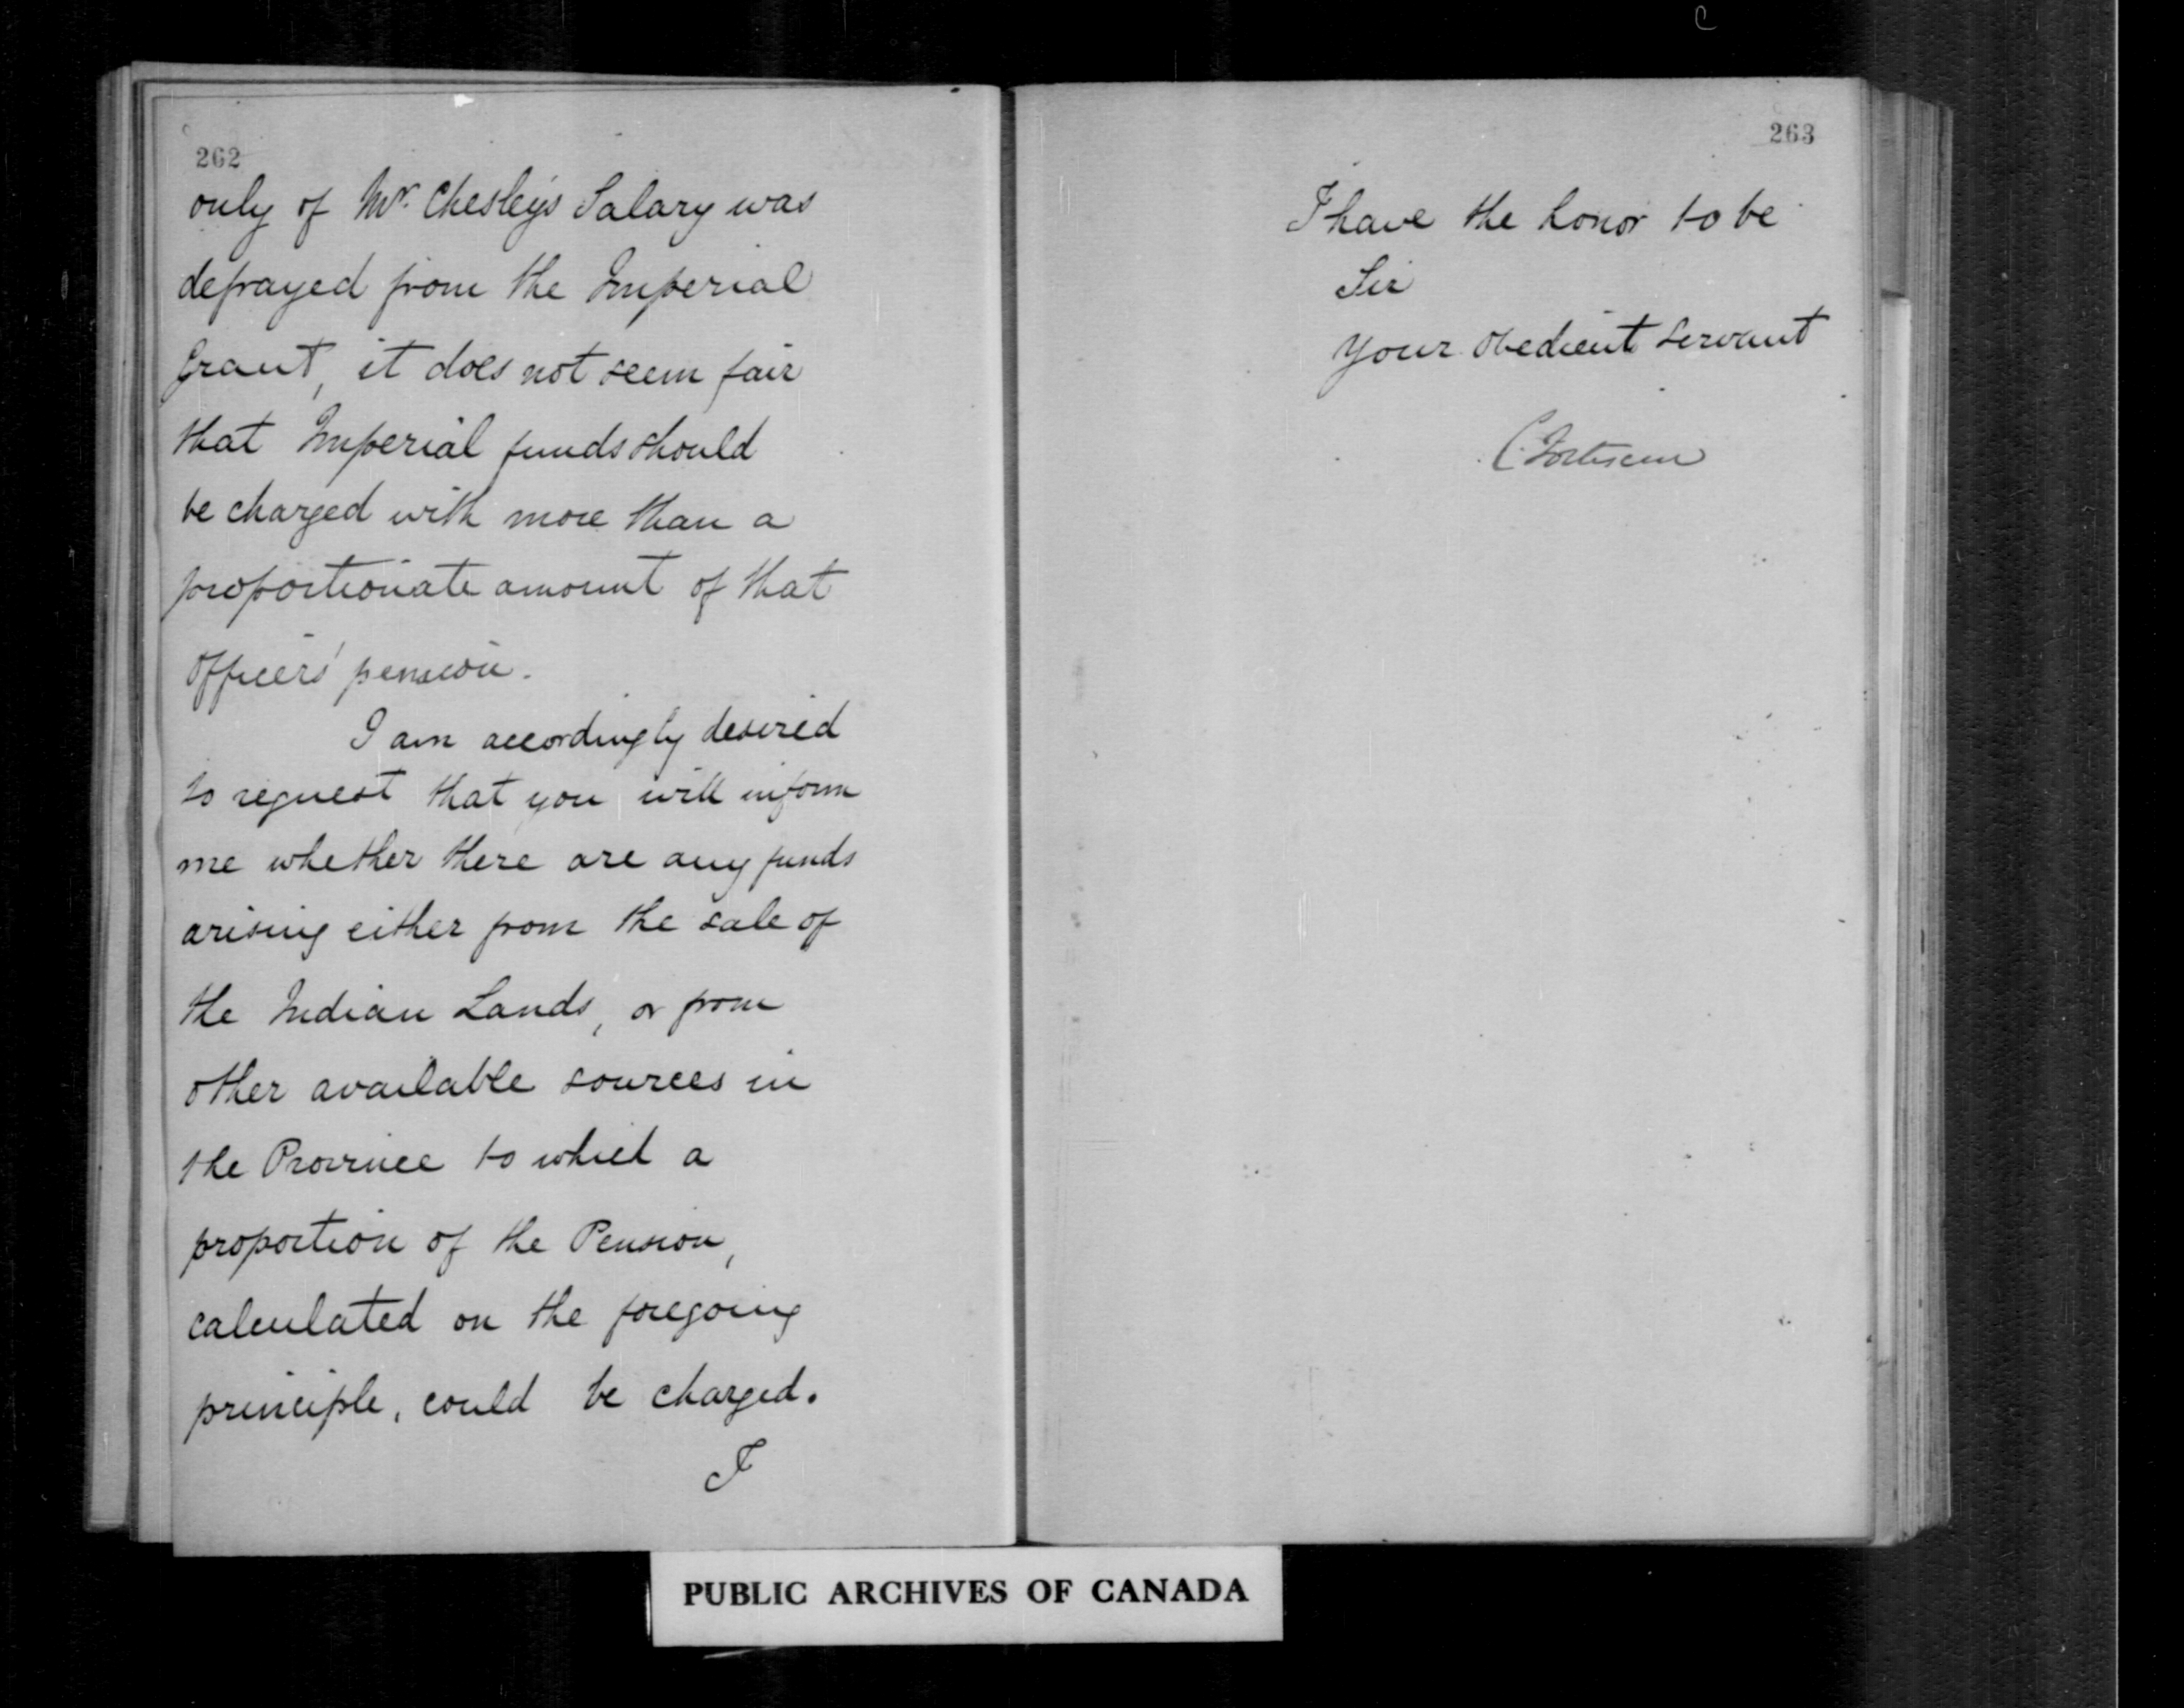 262
only of Mr. Chesley's Salary was
defrayed from the Imperial
Grant, it does not seem fair
that Imperial funds should
be charged with more than a
proportionate amount of that
Officers' pension.
I am accordingly desired
to request that you will inform
me whether there are any funds
arising either from the sale of
the Indian Lands, or from
other available sources in
the Province to which a
proportion of the Pension,
calculated on the foregoing
principle, could be charged.
I
263
I have the honor to be
Sir
Your obedient servant
C Fortescue
PUBLIC ARCHIVES OF CANADA